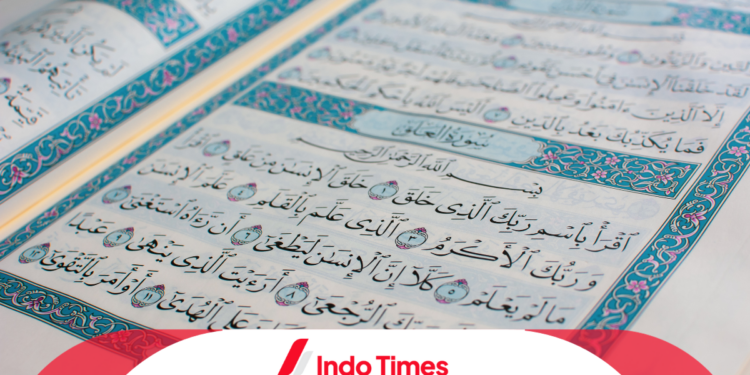 لَقَدْ خَلَقْنَا ٱلْإِنسَٰنَ فِىٓ أَحْسَنِ
إِلَّا ٱلَّذِينَ ءَامَنُوا۟ وَعَمِلُوا۟ ٱلصَّٰلِحَٰتِ
فَمَا يُكَذِّبُكَ بَعْدُ بِٱلدِّينِ ٧ أَلَيْسَ ٱللَّهُ بِأَحْكَمِ ٱلْحَٰكِمِينَ
سُورَةُ ٱلْعَلَقِ
بِسْمِ ٱللَّهِ ٱلرَّحْمَٰنِ ٱلرَّحِيمِ
ٱقْرَأْ بِٱسْمِ رَبِّكَ ٱلَّذِى خَلَقَ ١ خَلَقَ ٱلْإِنسَٰنَ مِنْ عَلَقٍ ٢ ٱقْرَأْ
وَرَبُّكَ ٱلْأَكْرَمُ ٣ ٱلَّذِى عَلَّمَ بِٱلْقَلَمِ ٤ عَلَّمَ ٱلْإِنسَٰنَ
مَا لَمْ يَعْلَمْ ٥ كَلَّآ إِنَّ ٱلْإِنسَٰنَ لَيَطْغَىٰٓ ٦ أَن رَّءَاهُ ٱسْتَغْنَىٰٓ ٧
ٱلرُّجْعَىٰٓ ٨ أَرَءَيْتَ ٱلَّذِى يَنْهَىٰ ٩ عَبْدًا
عَلَى ٱلْهُدَىٰٓ ١١ أَوْ أَمَرَ بِٱلتَّقْوَىٰٓ ١٢
Indo Times